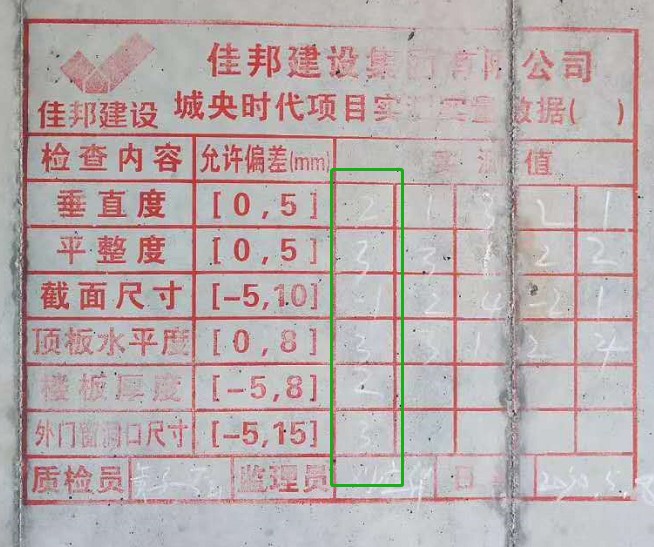 佳邦建设集团有限公司
佳邦建设 城央时代项目实测实量数据( )
检查内容 允许偏差(mm) 实测值
垂直度 [0,5] 2 1 3 2 1
平整度 [0,5] 3 3 1 2 2
截面尺寸 [-5,10] -1 2 4 -2 1
顶板水平度 [0,8] 3 3 1 2 4
楼板厚度 [-5,8] 2
外门窗洞口尺寸 [-5,15] 3
质检员 监理员 日期